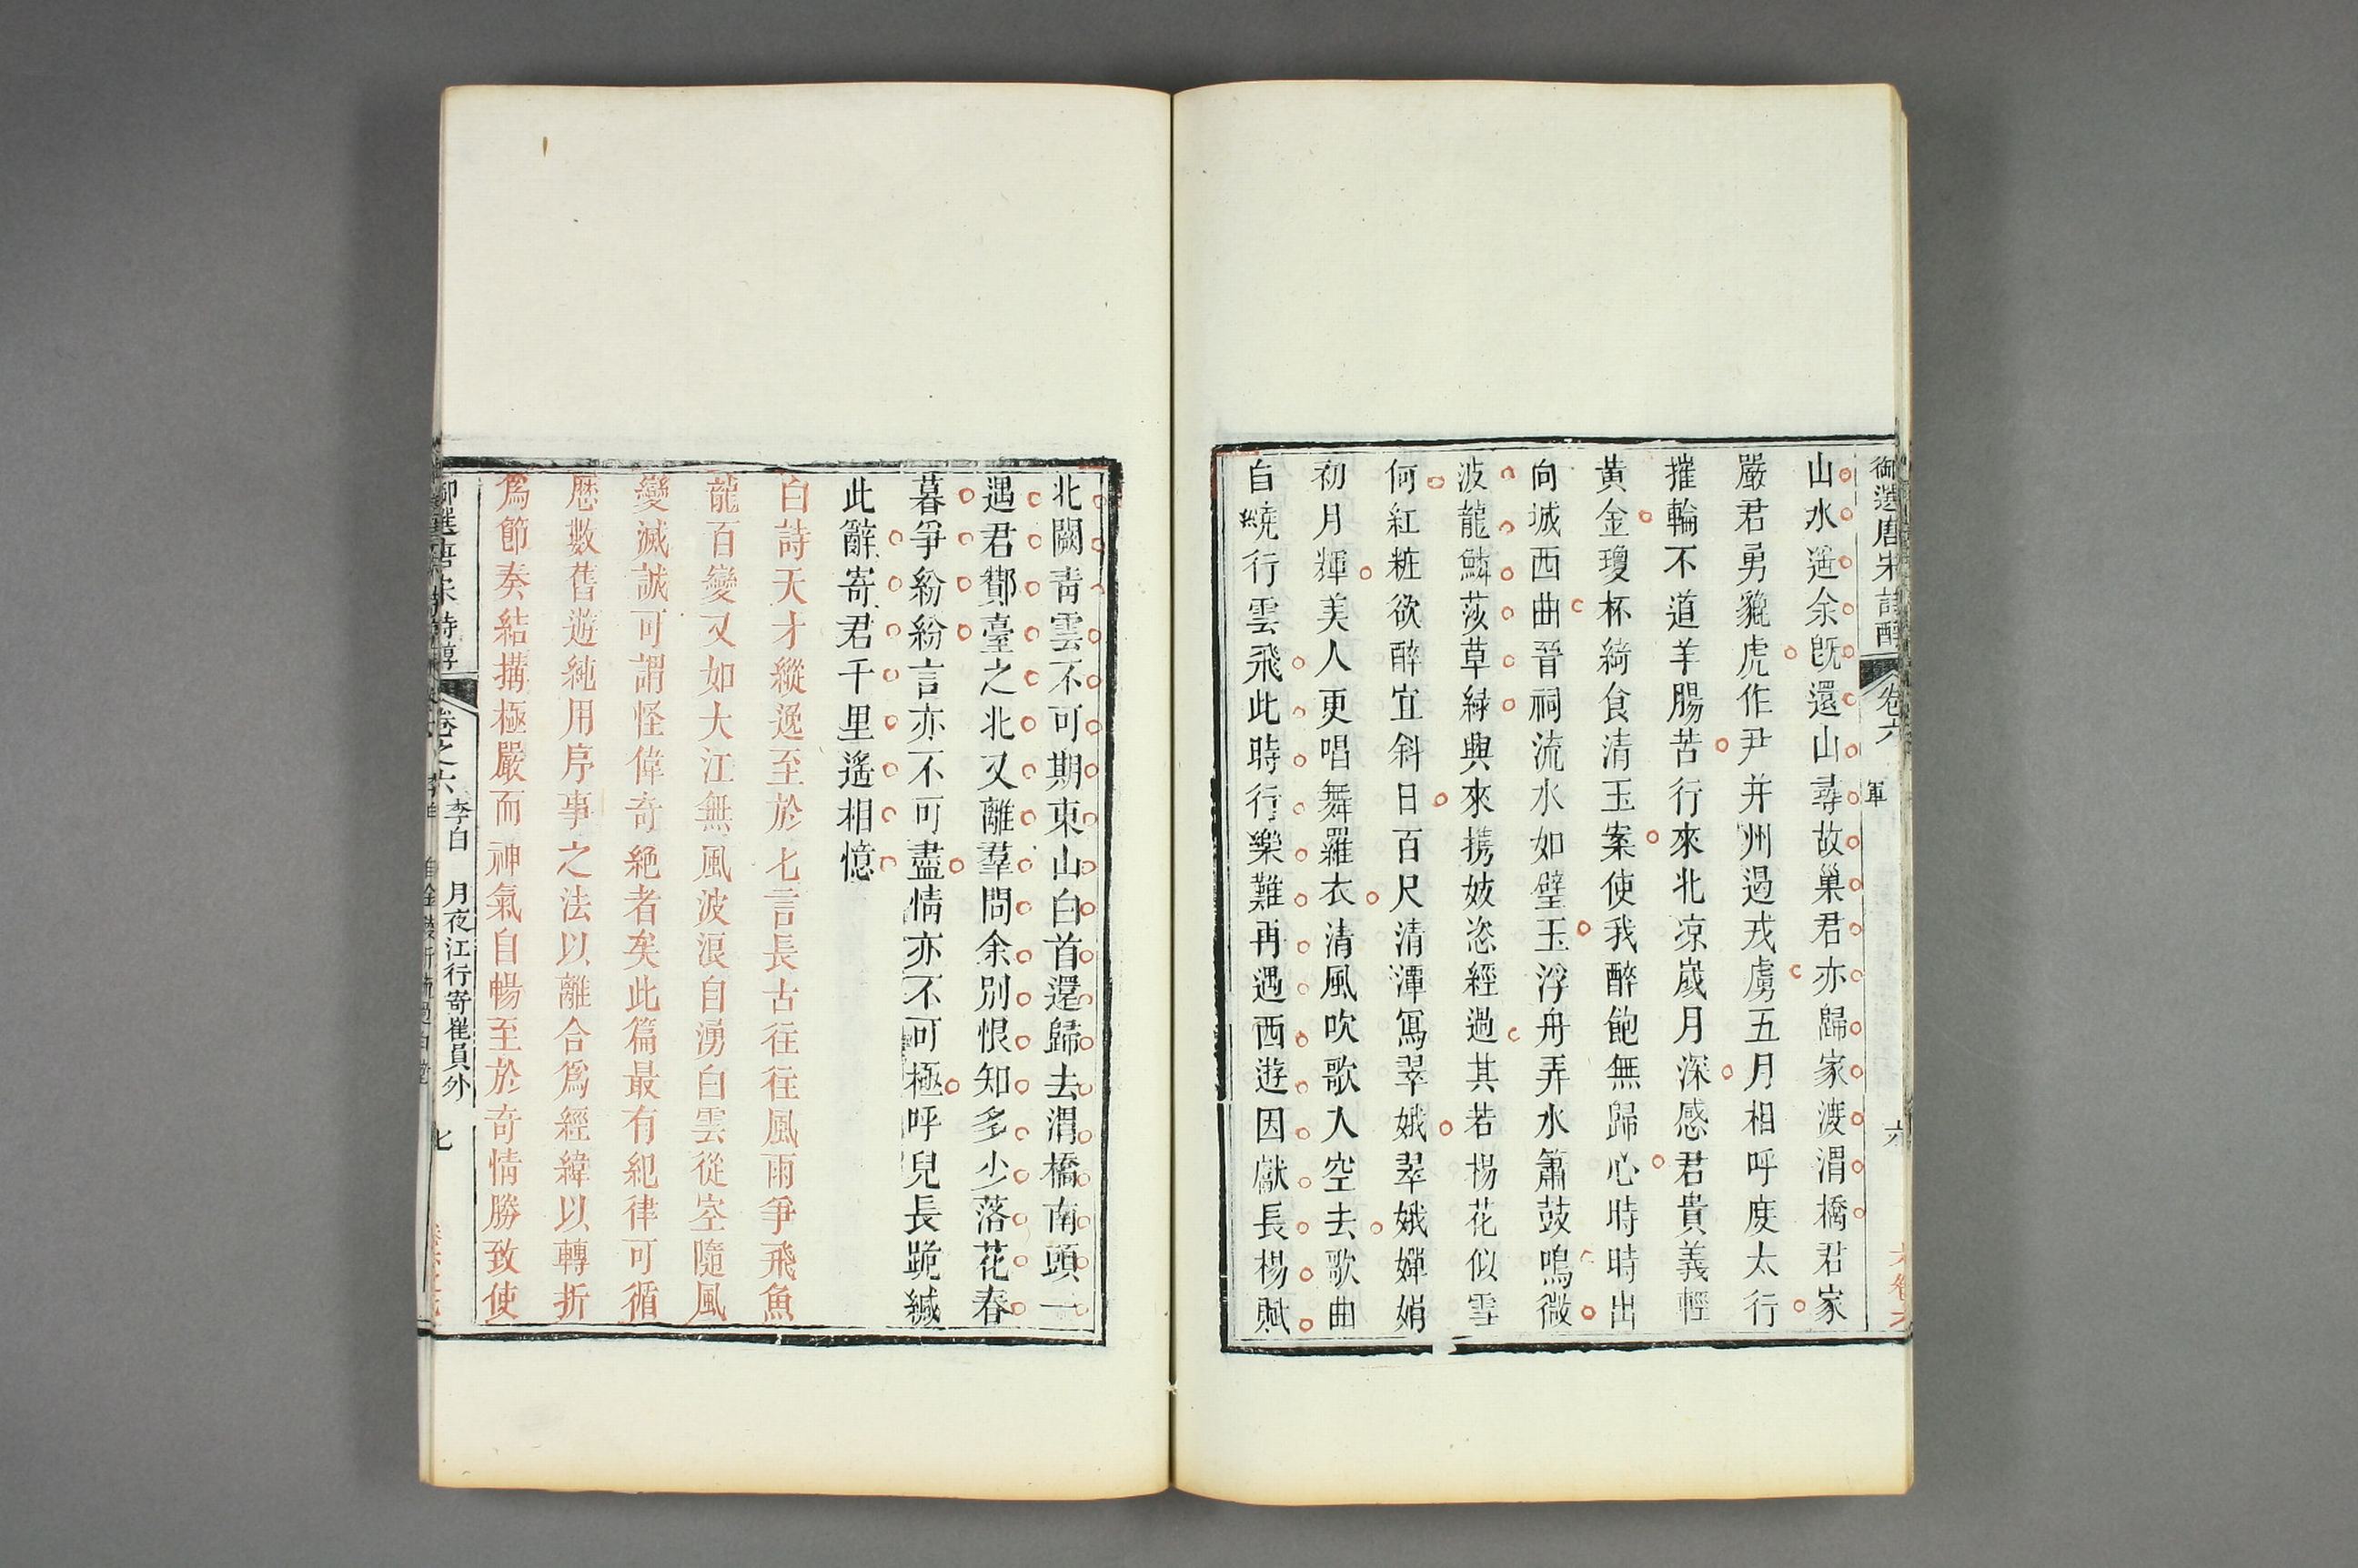 御選唐宋詩醇 卷六
六
山水遥余旣還山尋故巢君亦歸家渡渭橋君家
嚴君勇貔虎作尹并州遏戎虜五月相呼度太行
摧輪不道羊腸苦行來北凉歲月深感君貴義輕
黃金瓊杯綺食清玉案使我醉飽無歸心時時出
向城西曲晉祠流水如壁玉浮舟弄水簫鼓鳴微
波龍鱗莎草緑興來攜妓恣經過其若楊花似雪
何紅粧欲醉宜斜日百尺清潭寫翠娥翠娥嬋娟
初月輝美人更唱舞羅衣清風吹歌入空去歌曲
自繞行雲飛此時行樂難再遇西遊因獻長楊賦
北闕靑雲不可期東山白首還歸去渭橋南頭一
遇君酇臺之北又離羣問余別恨知多少落花春
暮爭紛紛言亦不可盡情亦不可極呼兒長跪緘
此辭寄君千里遙相憶
白詩天才縱逸至於七言長古往往風雨爭飛魚
龍百變又如大江無風波浪自湧白雲從空隨風
變滅誠可謂怪偉奇絶者矣此篇最有紀律可循
歷數舊遊純用序事之法以離合爲經緯以轉折
爲節奏結搆極嚴而神氣自暢至於奇情勝致使
御選唐宋詩醇 卷之六 李白 月夜江行寄崔員外 七